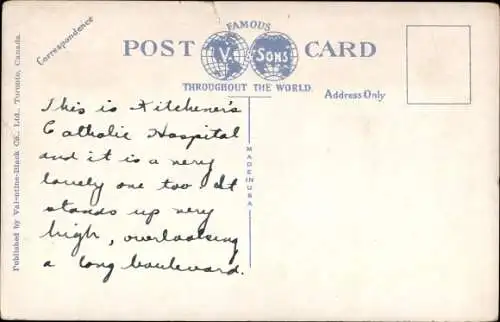 Correspondence
FAMOUS
POST V. & SONS' CARD
THROUGHOUT THE WORLD
Address Only
This is Kitchener's
Catholic Hospital
and it is a very
lovely one too It
stands up very
high, overlooking
a long boulevard.
MADE IN U.S.A.
Published by Valentine-Black Co., Ltd., Toronto, Canada.